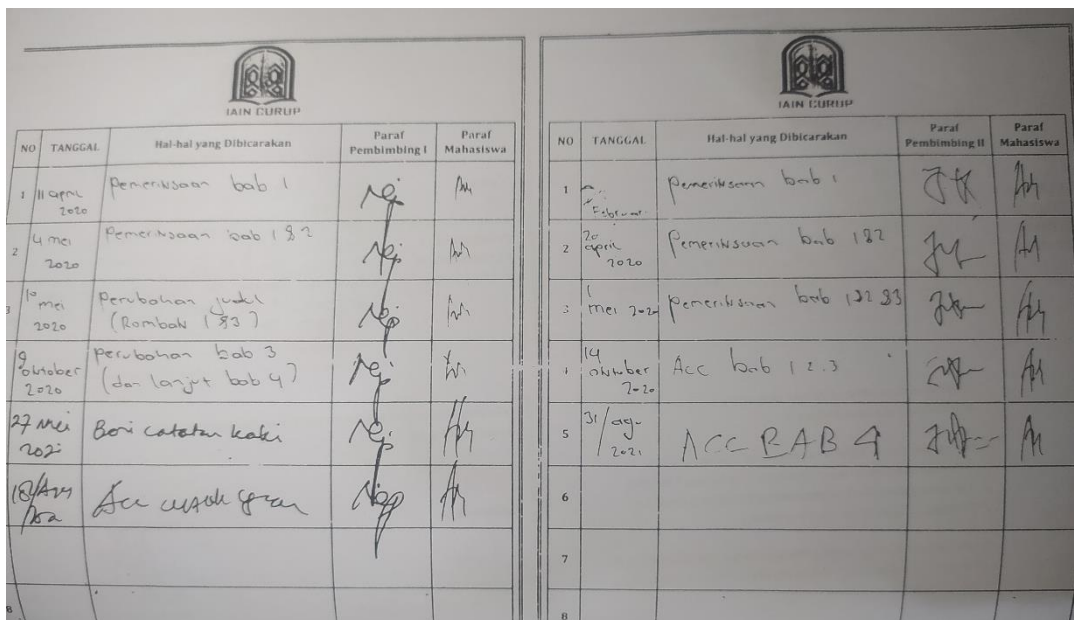 IAIN CURUP
NO TANGGAL Hal-hal yang Dibicarakan Paraf Pembimbing I Paraf Mahasiswa
1 11 april 2020 Pemeriksaan bab 1
2 4 mei 2020 Pemeriksaan bab 1 & 2
3 10 mei 2020 Perubahan judul
(Rombak 1 & 3)
9 oktober 2020 perubahan bab 3
(dan lanjut bab 4)
27 Mei Beri catatan kaki
18/ Acc
8
IAIN CURUP
NO TANGGAL Hal-hal yang Dibicarakan Paraf Pembimbing II Paraf Mahasiswa
1 Februari Pemeriksaan bab 1
2 20 april 2020 Pemeriksaan bab 1 & 2
3 1 mei 2020 Pemeriksaan bab 1 & 2 & 3
4 14 oktober 2020 Acc bab 1 2.3
5 31/agu 2021 ACC BAB 4
6
7
8